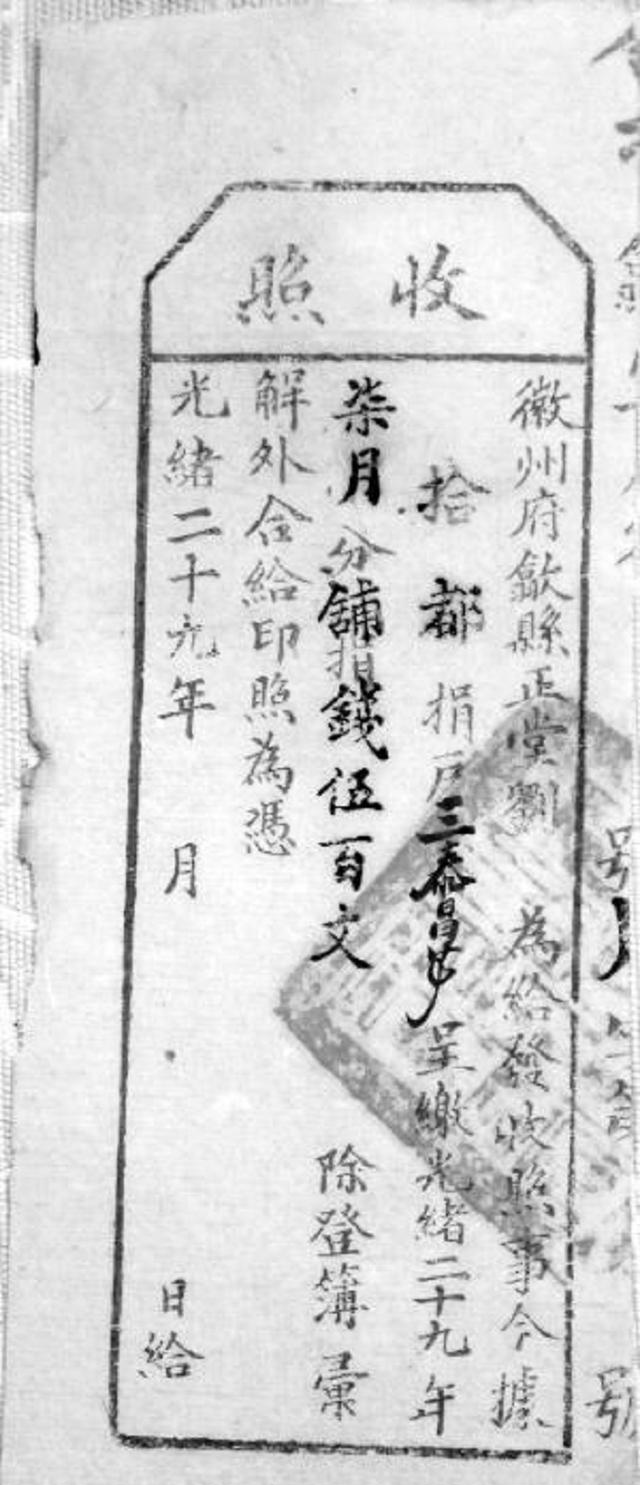 收照
徽州府歙縣正堂劉 為給發收照事今據
拾都捐戶三泰昌 呈繳光緒二十九年
柒月分舖捐錢伍百文 除登簿彙
解外合給印照為憑
光緒二十九年 月 日給
號
號